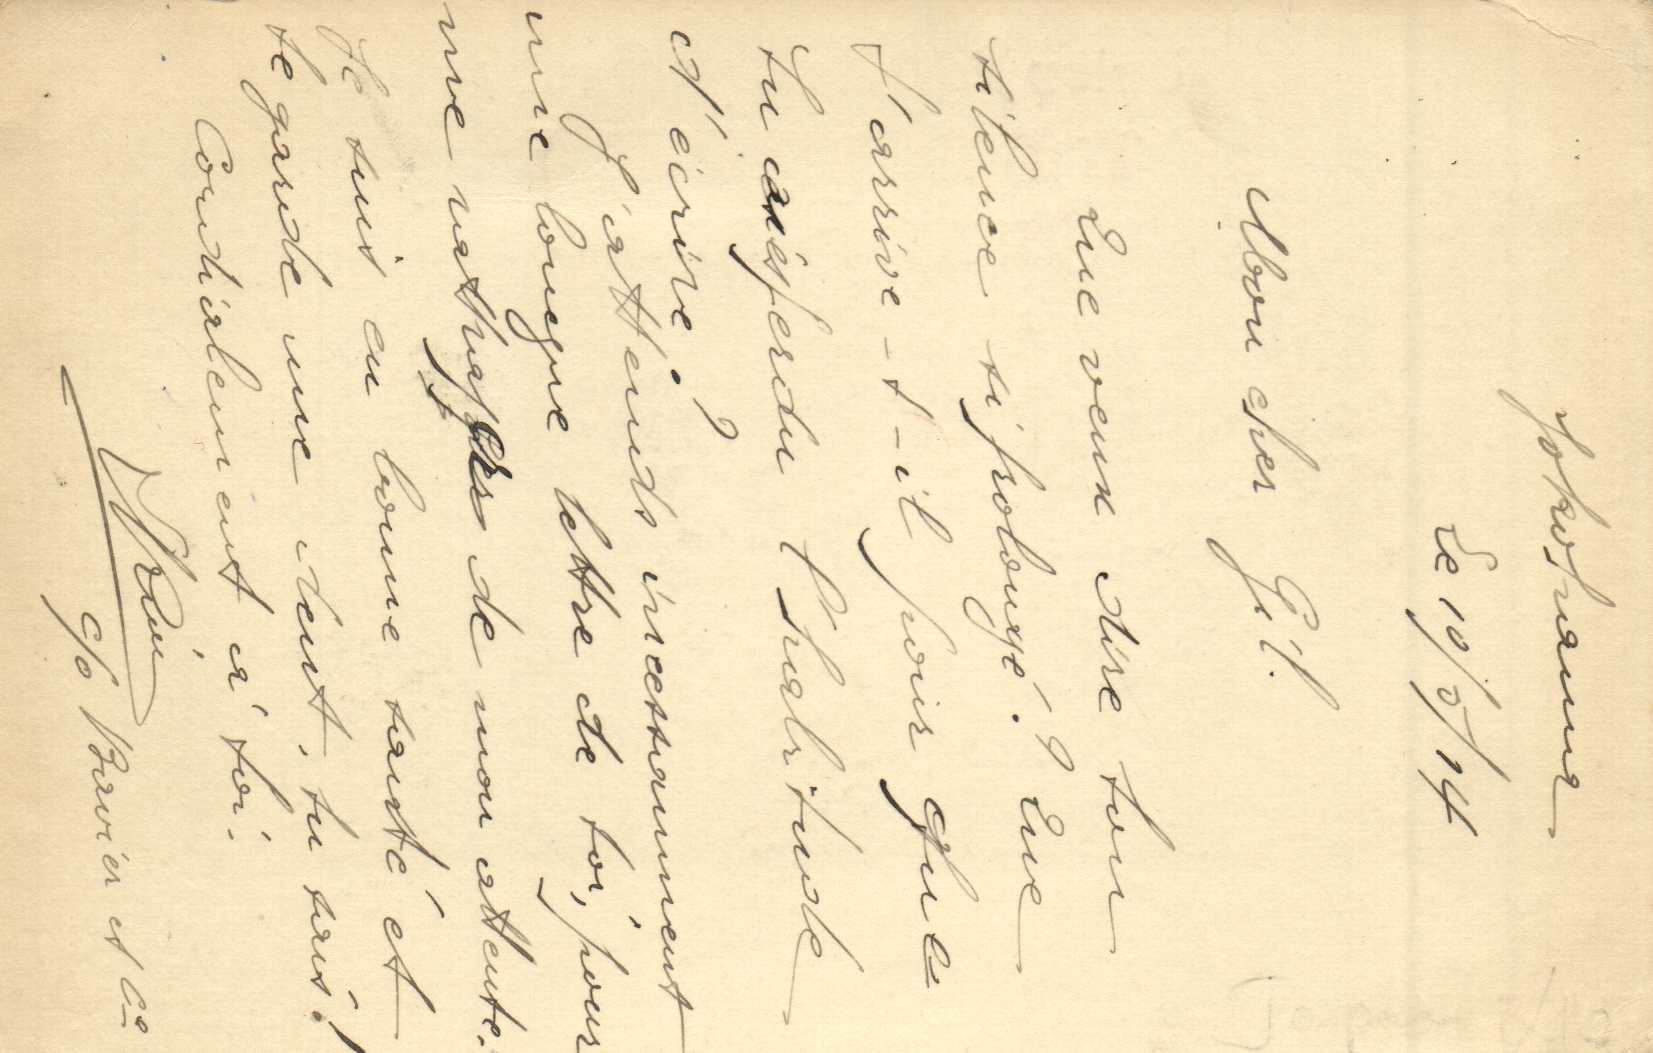 Yokohama
Le 19/5/14
Mon cher Gil.
Que veux dire ton
silence si prolongé? Que
t'arrive-t-il pour que
tu aies perdu l'habitude
d'écrire?
J'attends incessamment
une longue lettre de toi, pour
me rattraper de mon attente.
Je suis en bonne santé et
te garde une dent, tu sais!
Cordialement à toi.
c/o Bavier et Co